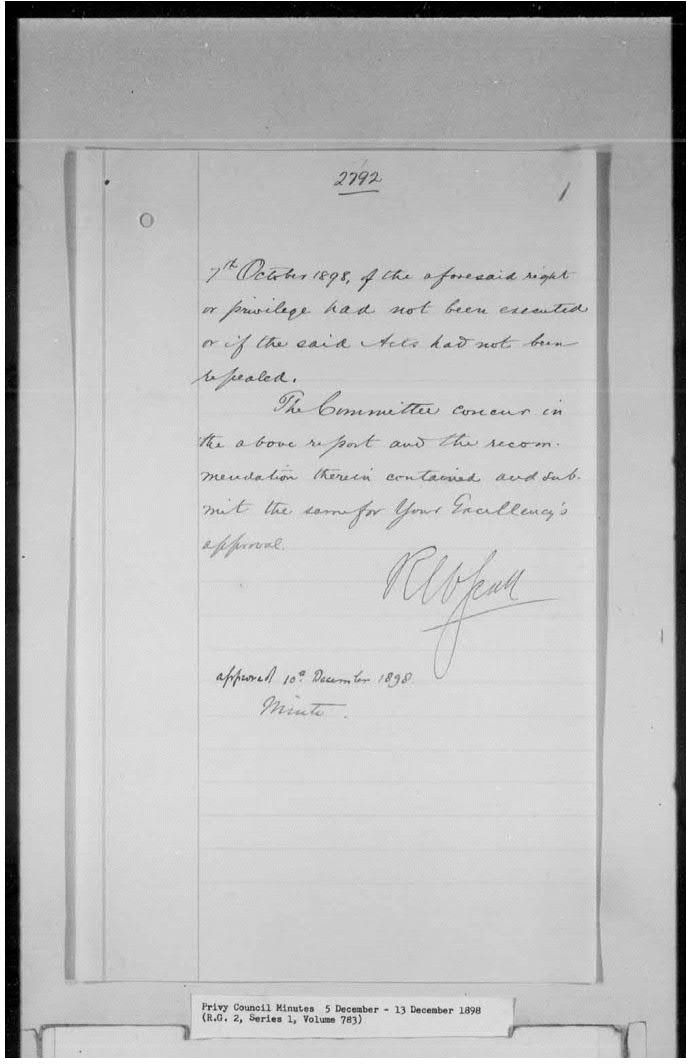 2792
7th October 1898, if the aforesaid right
or privilege had not been executed
or if the said Acts had not been
repealed.
The Committee concur in
the above report and the recom-
mendation therein contained and sub-
mit the same for Your Excellency's
approval.
RW Scott
approved 10 December 1898.
Minto.
Privy Council Minutes 5 December - 13 December 1898
(R.G. 2, Series 1, Volume 783)